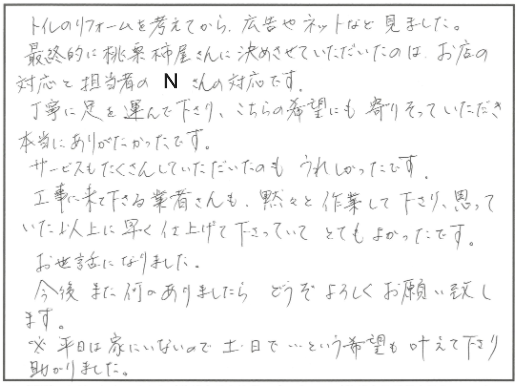 トイレのリフォームを考えてから、広告やネットなど見ました。
最終的に桃栗柿屋さんに決めさせていただいたのは、お店の
対応と担当者の N さんの対応です。
丁寧に足を運んで下さり、こちらの希望にも寄りそっていただき
本当にありがたかったです。
サービスもたくさんしていただいたのもうれしかったです。
工事に来て下さる業者さんも、黙々と作業して下さり、思って
いた以上に早く仕上げて下さっていてとてもよかったです。
お世話になりました。
今後また何かありましたらどうぞよろしくお願い致し
ます。
※平日は家にいないので土・日で…という希望も叶えて下さり
助かりました。